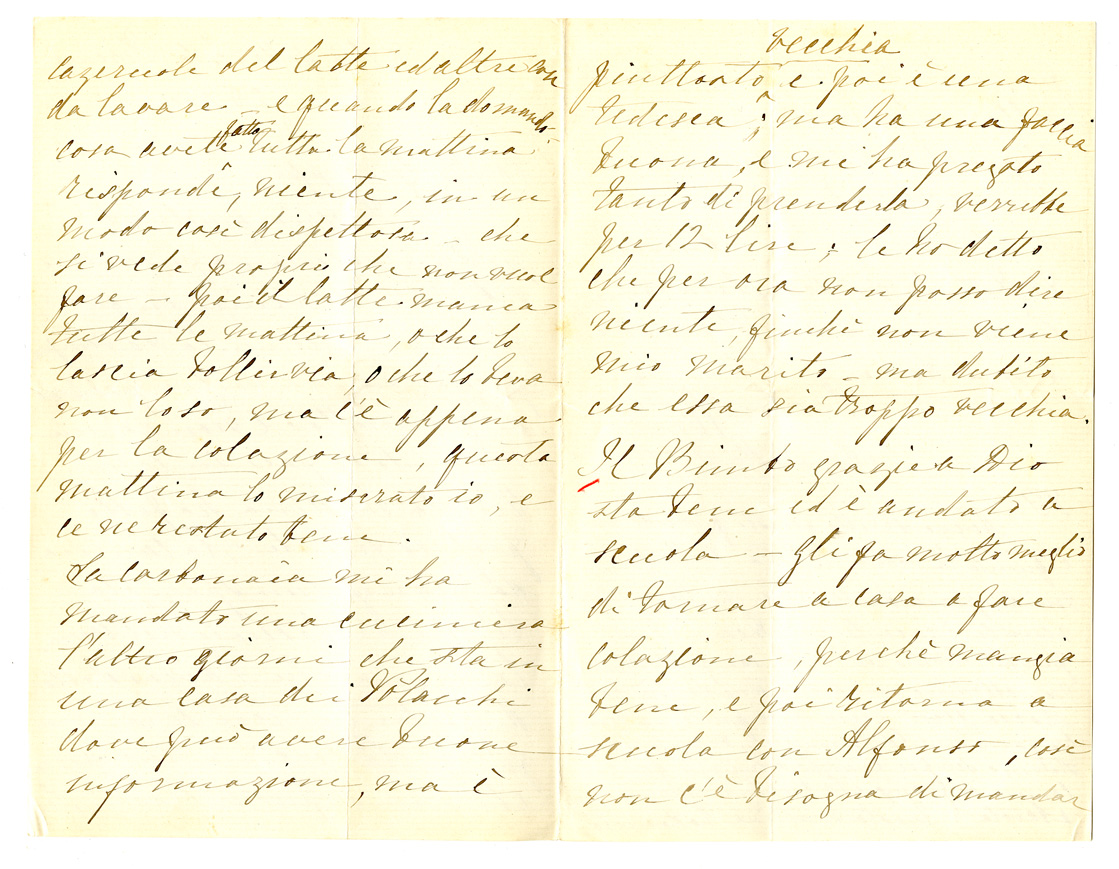 cazeruole del latte ed altre cose
da lavare – e quando la domando
cosa avete fatto tutta la mattina
risponde, niente, in un
modo così dispettosa – che
si vede proprio che non vuol
fare – poi il latte manca
tutte le mattina, o che lo
lascia bollir via, o che lo beva
non lo so, ma c'è appena
per la colazione, questa
mattina lo misurato io, e
ce ne restato bene.
La carbonaia mi ha
mandato una cuciniera
l'altro giorni che sta in
una casa dei Polacchi
dove può avere buone
informazione, ma è
piuttosto vecchia e poi è una
tedesca; ma ha una faccia
buona, e mi ha pregato
tanto di prenderla, verrebbe
per 12 lire; le ho detto
che per ora non posso dire
niente, finchè non viene
mio marito – ma dubito
che essa sia troppo vecchia.
Il Bimbo grazie a Dio
sta bene ed è andato a
scuola – gli fa molto meglio
di tornare a casa a fare
colazione, perchè mangia
bene, e poi ritorna a
scuola con Alfonso, così
non c'è bisogna di mandar